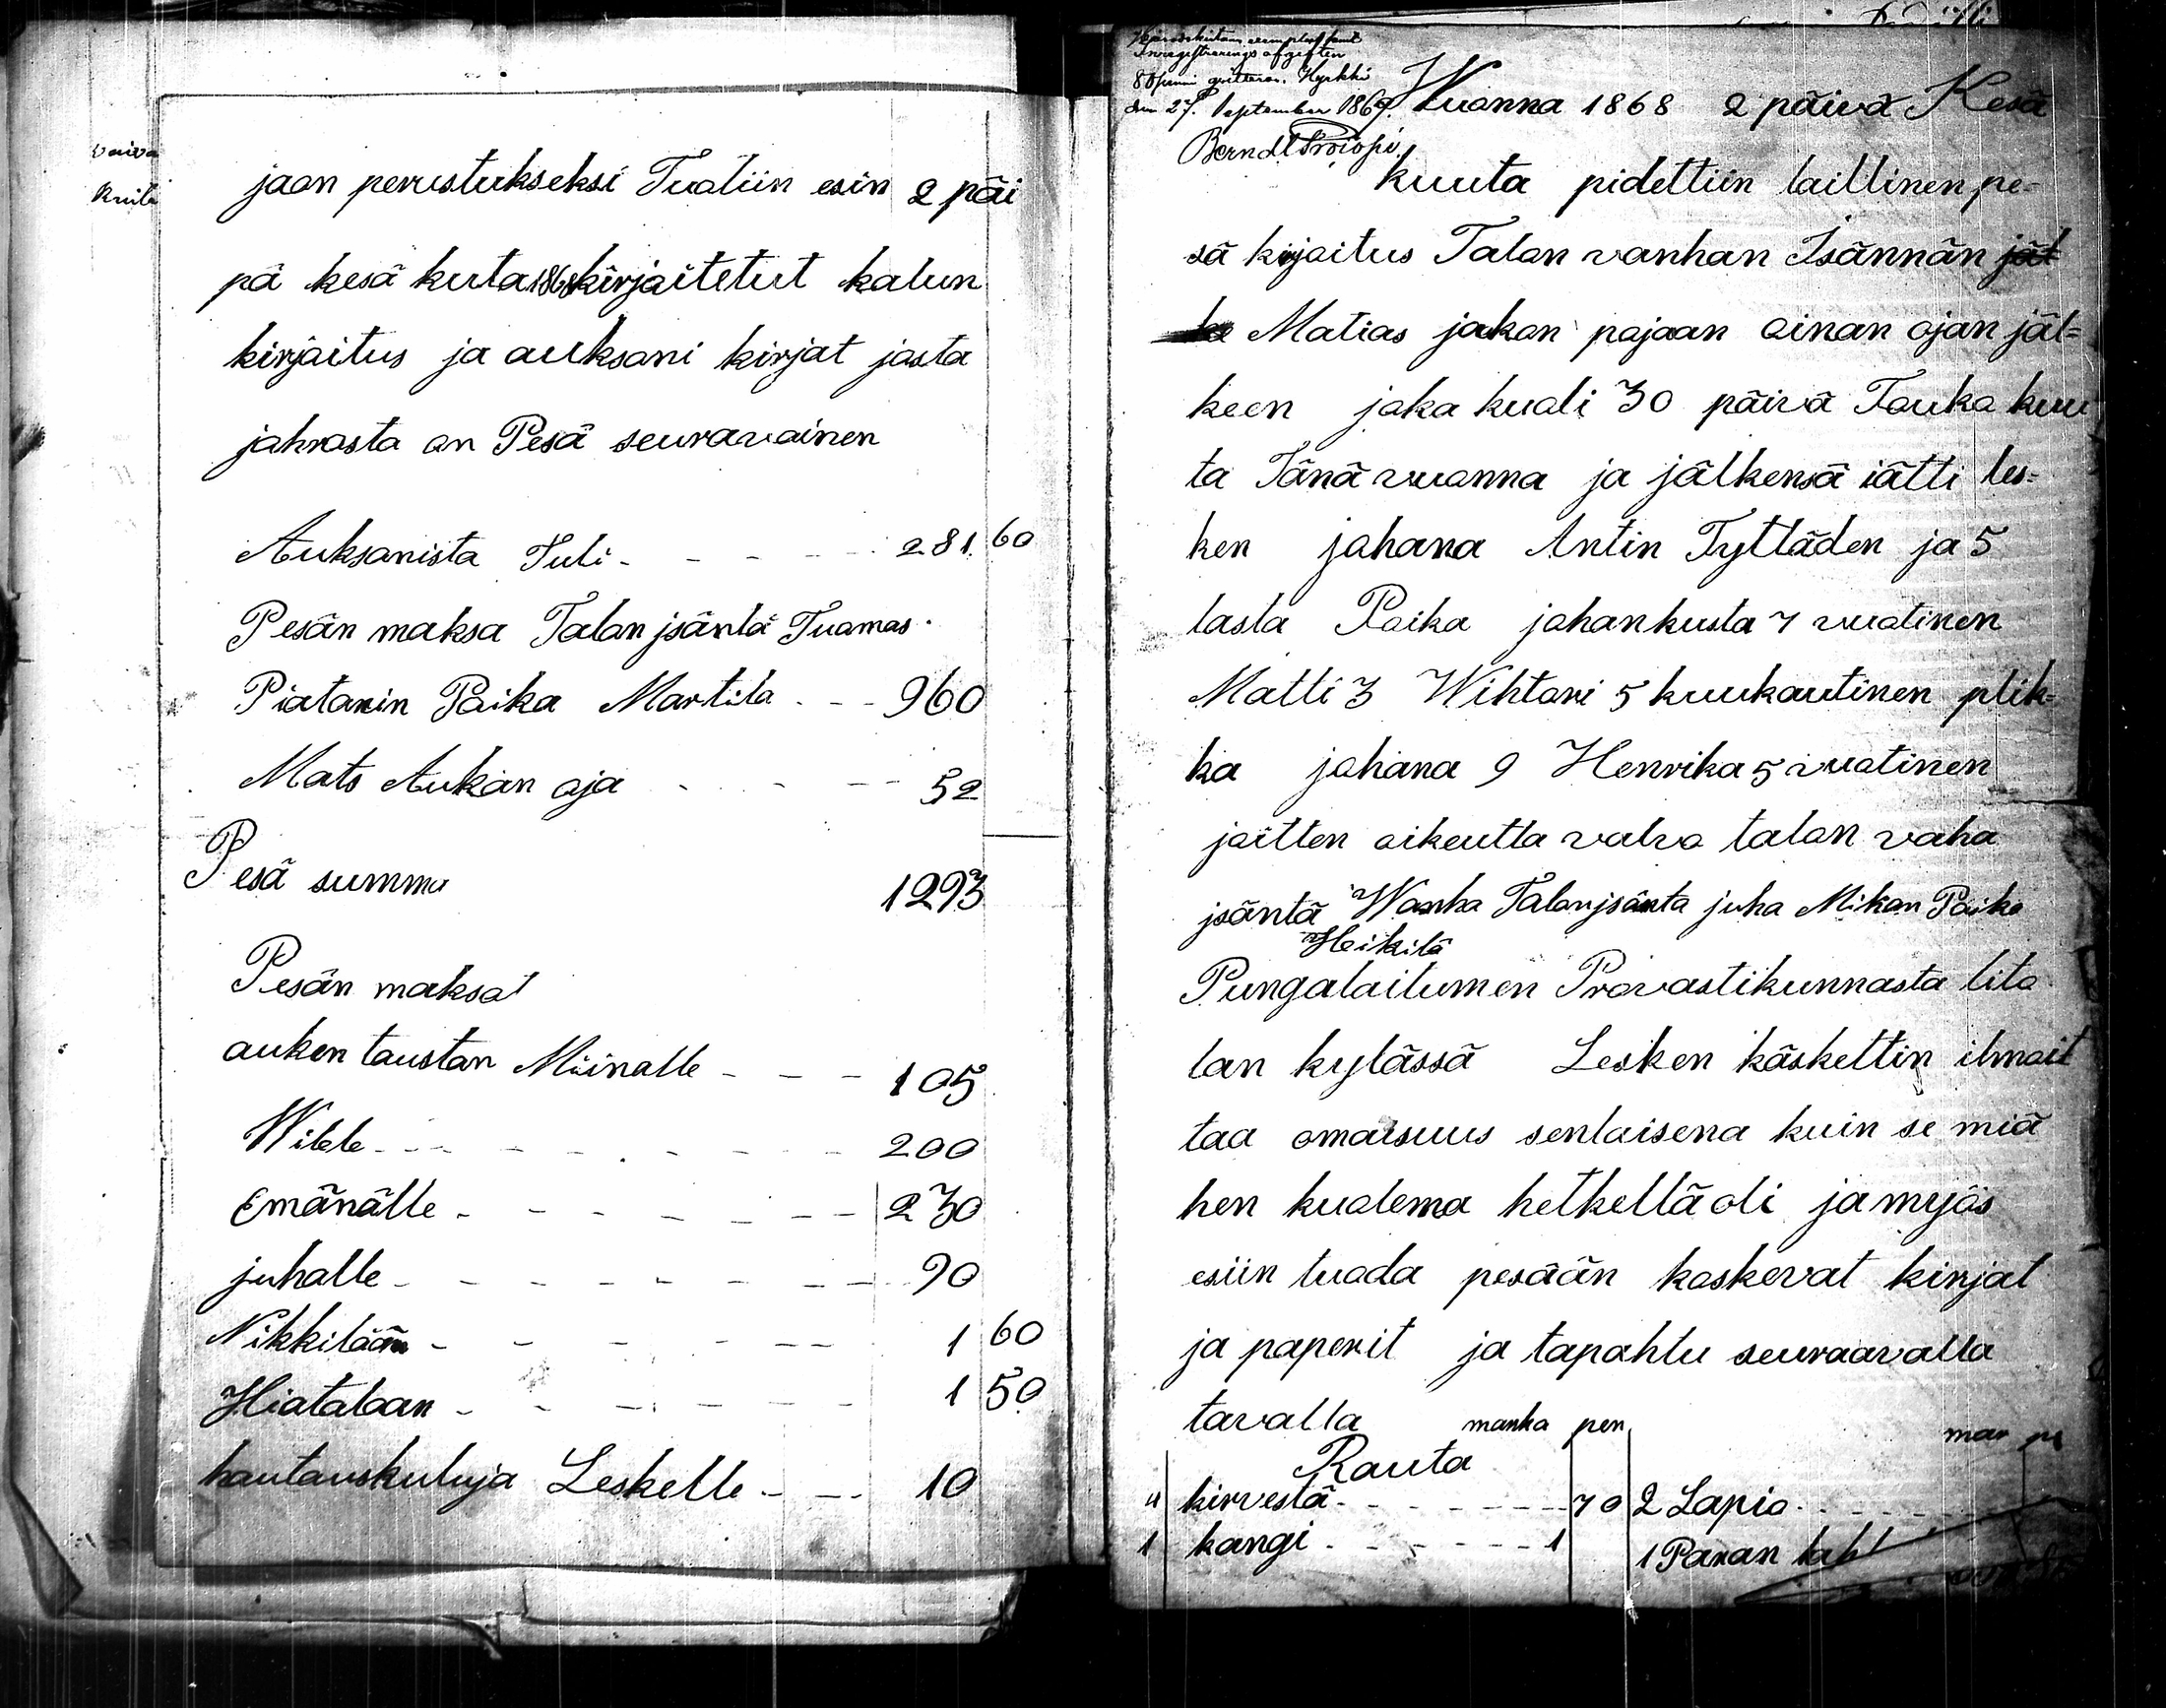 vaiva
kuita
jaon perustukseksi Tuatiin esin 2 päi
pä kesä kuta 1868 kirjaitetut kalun
kirjaitus ja auksoni kirjat josta
johrosta on Pesä seuravainen
Auksonista Tuli - - - - - 281. 60
Pesän maksa Talon jsäntä Tuomas
Piatarin Poika Martila - - - 960
Mats Aukan oja - - - - 52
Pesä summa 1293
Pesän maksat
auken taustan Miinalle - - - 105
Wilele - - - - - - - 200
Emänälle - - - - - - - 230
juhalle - - - - - - - - 90
Nikkilään - - - - - - 1 60
Hiataloan - - - - - - - 1 50
hautauskuluja Leskelle - - - 10
Inregistrerings afgiften
den 27. September 1869.
Berndt
Wuonna 1868 2 päivä Kesä
kuuta pidettiin laillinen pe=
sä kirjaitus Talon vanhan Isännän jät
Matias jakon pojaan oinan ojan jäl=
keen joka kuali 30 päivä Touko kuu
ta Tänä vuonna ja jälkensä iätti les=
ken johana Antin Tyttäden ja 5
lasta Poika johankusta 7 vuotinen
Matti 3 Wihtori 5 kuukautinen plik=
ka johana 9 Henrika 5 vuotinen
joitten oikeutta valvo talon vaha
jsäntä Wanha Talonjsänta juha Mikon Poika
Heikilä
Pungalaitumen Provastikunnasta lito
lan kylässä Lesken käskettin ilmait
taa omaisuus senlaisena kuin se miä
hen kualema hetkellä oli ja myös
esiin tuoda pesään koskevat kirjat
ja paperit ja tapahtu seuraavalla
tavalla marka pen mar pe
Rauta
4 kirvestä - - - - - - - 70 2 Lapio - - - -
1 kangi - - - - - - 1 1 Paran